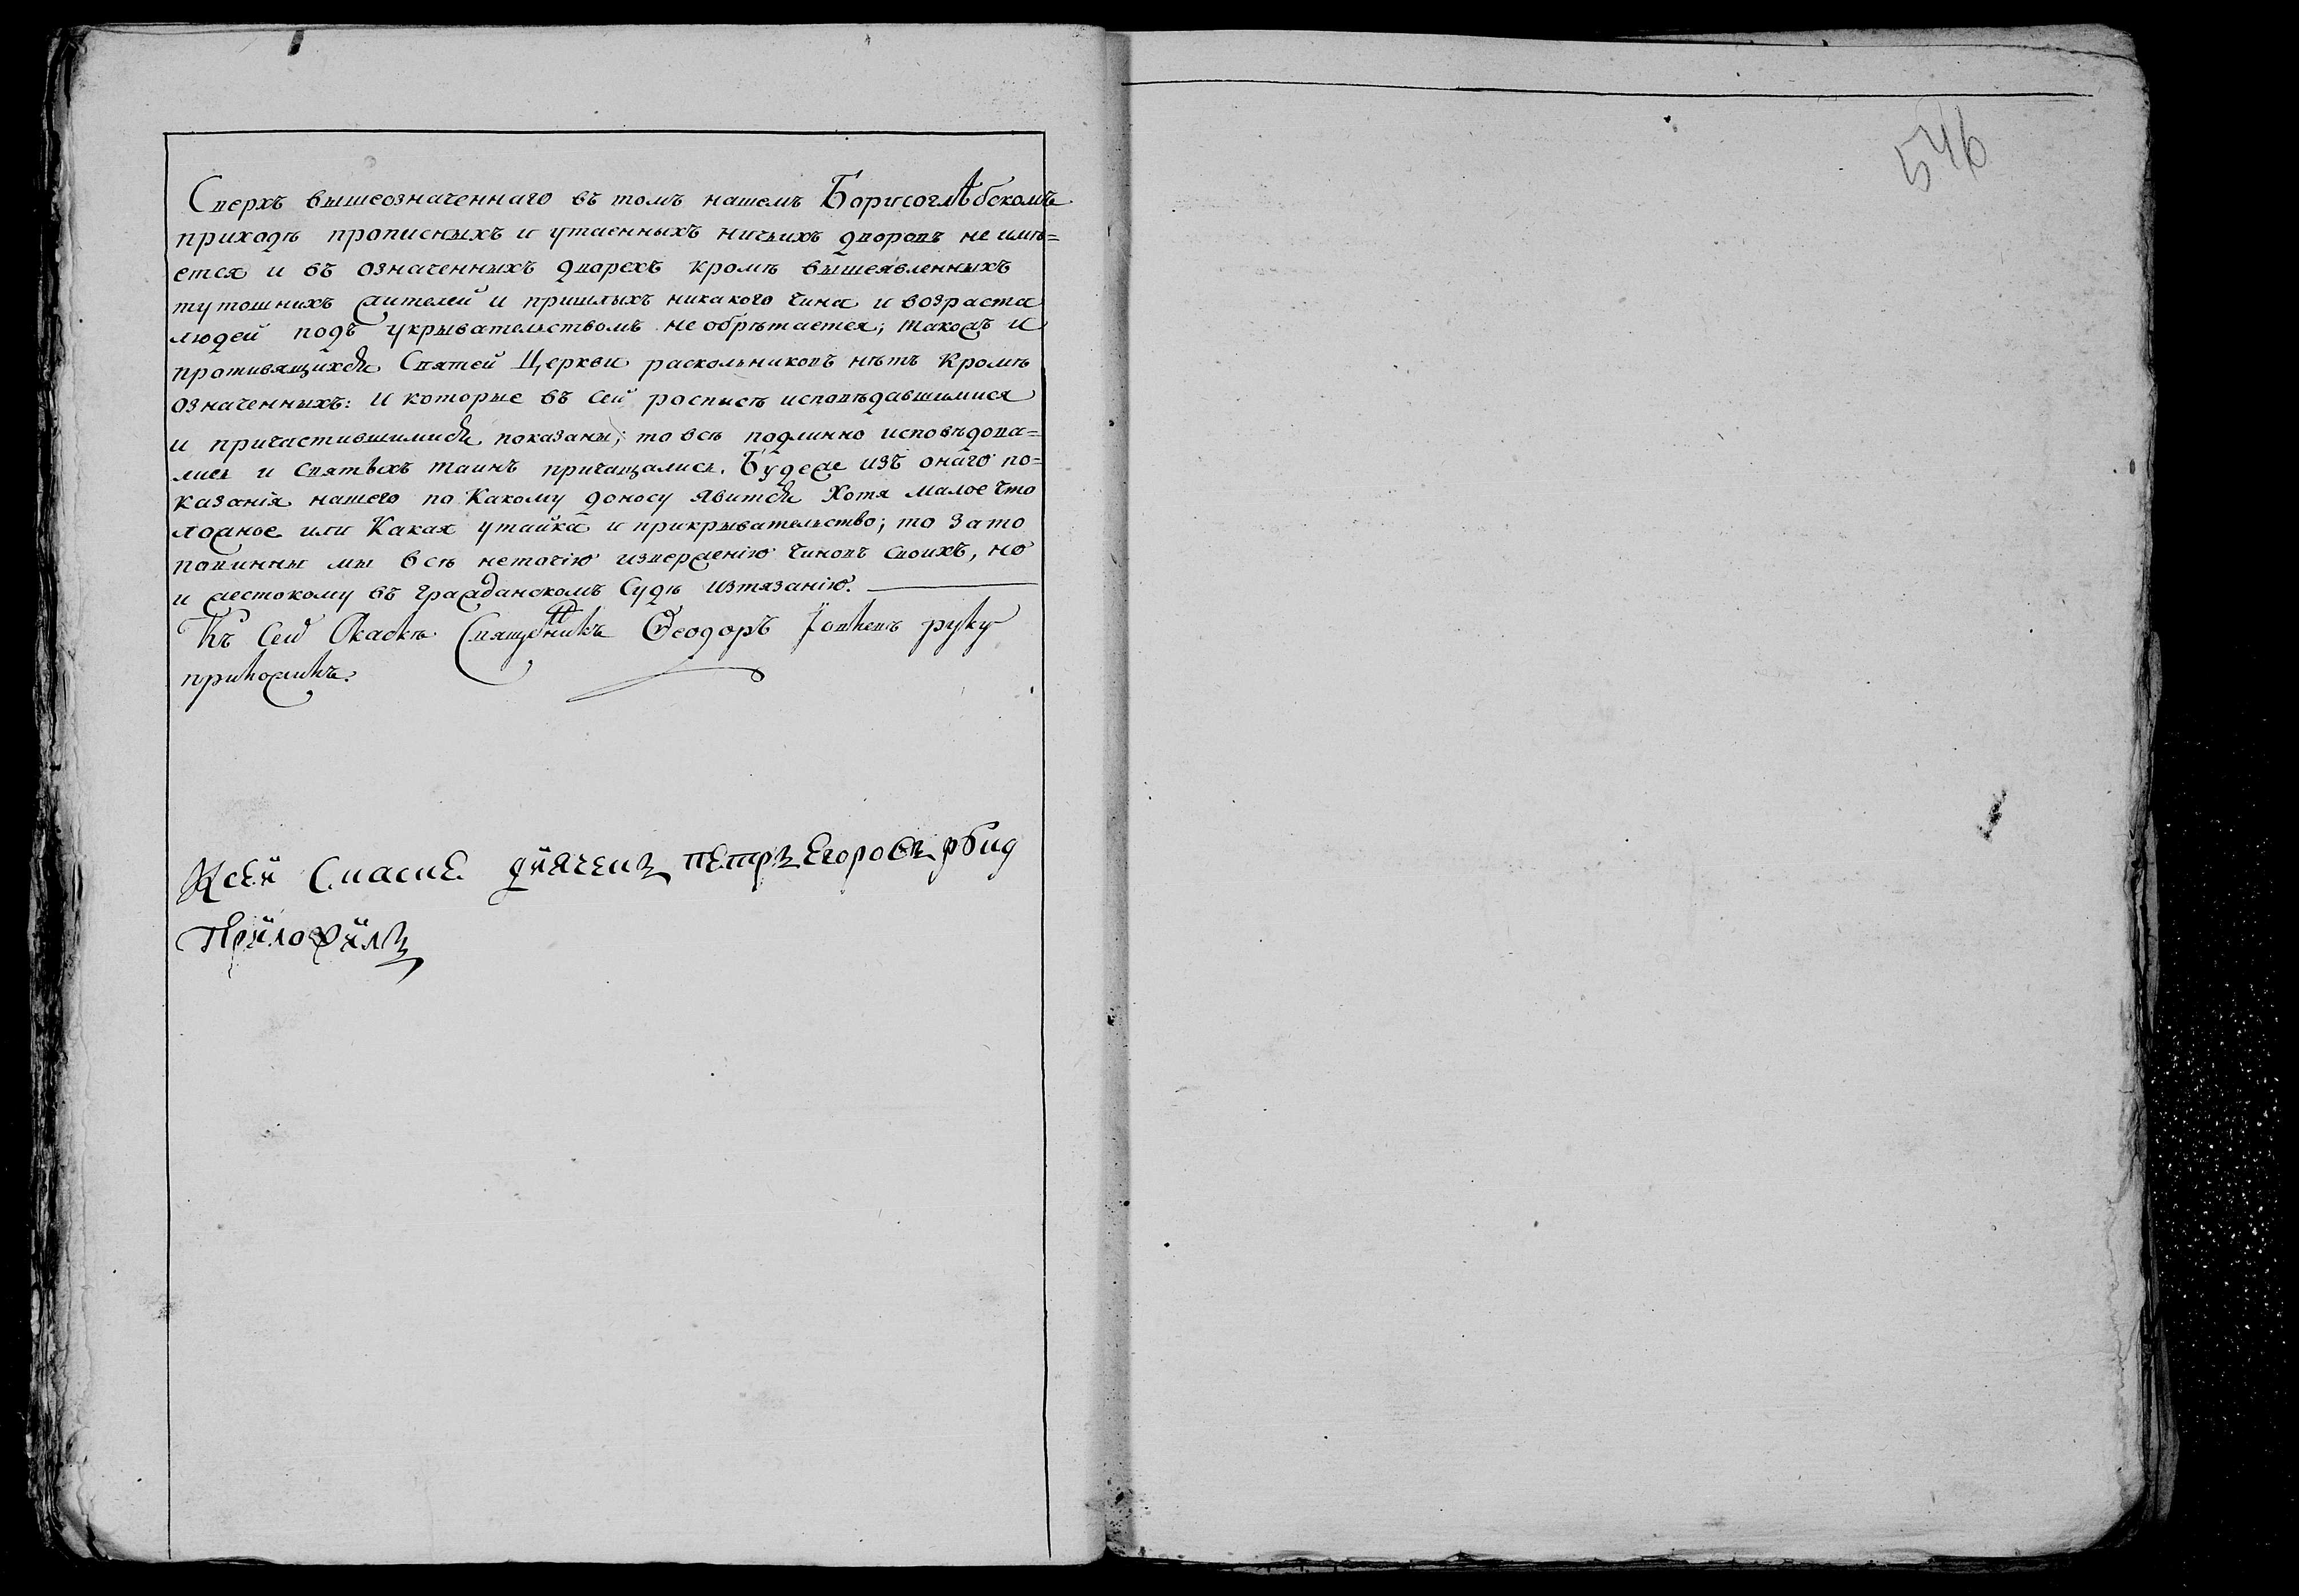 Сверхъ вышеозначеннаго въ томъ нашемъ Борисоглѣбскомъ
приходѣ прописныхъ и утаенныхъ ничьихъ дворовъ не имѣ=
ется и въ означенныхъ дворехъ кромѣ вышеявленныхъ
тутошнихъ жителей и пришлыхъ никакого чина и возраста
людей подъ укрывательствомъ не обрѣтается; такожъ и
противящихся Святей Церкви раскольниковъ нѣтъ кромѣ
означенныхъ: и которые въ сей росписѣ исповѣдавшимися
и причастившимися показаны; то всѣ подлинно исповѣдова=
лись и святыхъ таинъ причащались. Будеже изъ онаго по=
казанія нашего по какому доносу явится хотя малое что
ложное или какая утайка и прикрывательство; то за то
повинны мы всѣ неточію изверженію чиновъ своихъ, но
и жестокому въ гражданскомъ судѣ изтязанію.
Къ сей скаскѣ священникъ Ѳеодоръ руку
приложилъ.
Ксей Петръ Егоровъ
приложилъ
546